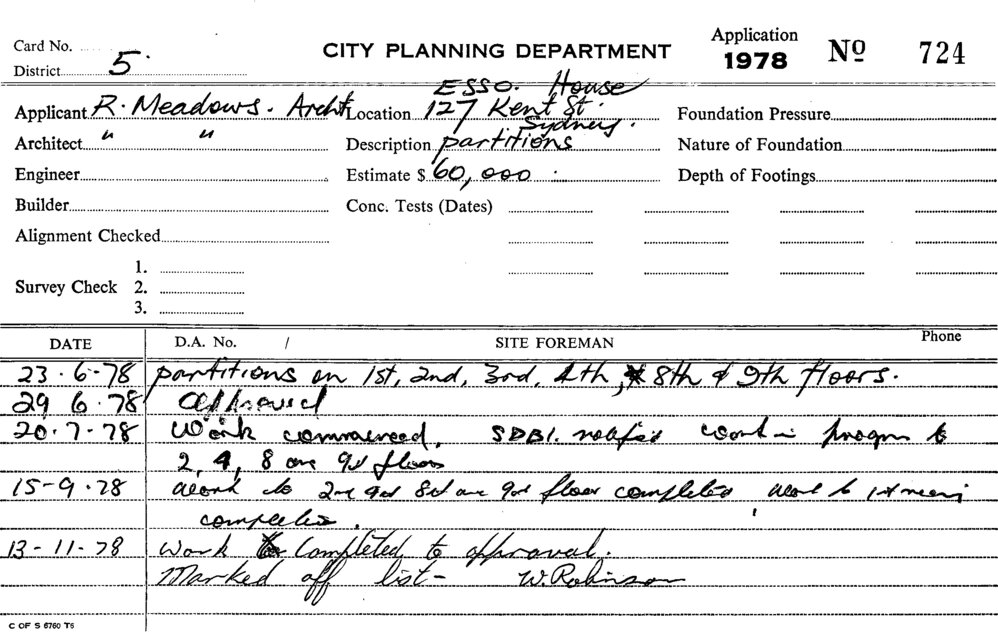 Card No.
CITY PLANNING DEPARTMENT
Application
1978 Nº 724
District 5.
ESSO. House
Applicant R. Meadows. Archt
Location 127 Kent St.
Sydney.
Foundation Pressure
Architect " "
Description partitions
Nature of Foundation
Engineer
Estimate $ 60,000
Depth of Footings
Builder
Conc. Tests (Dates)
Alignment Checked
1.
Survey Check 2.
3.
DATE D.A. No. / SITE FOREMAN Phone
23.6-78 partitions on 1st, 2nd, 3rd, 4th, 8th & 9th floors.
29 6.78 approved
20.7-78 Work commenced. SDBI. work in progress to
2, 4, 8 floors
15-9.78 work to floor completed work to
13-11-78 work completed to approval.
Marked off list- W. Robinson
C OF S 6760 T6